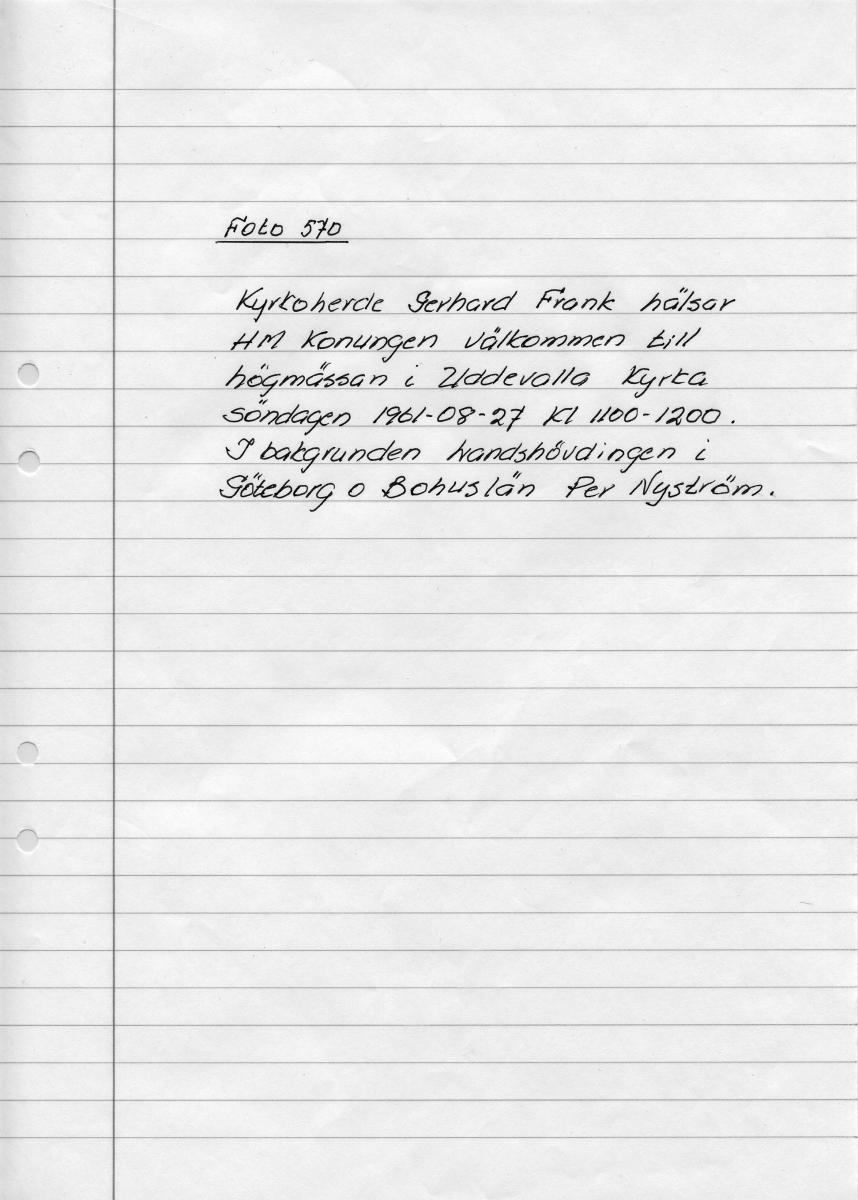 Foto 570
Kyrkoherde Gerhard Frank hälsar
HM Konungen välkommen till
högmässan i Uddevalla Kyrka
söndagen 1961-08-27 Kl 1100-1200.
I bakgrunden Landshövdingen i
Göteborg o Bohuslän Per Nyström.